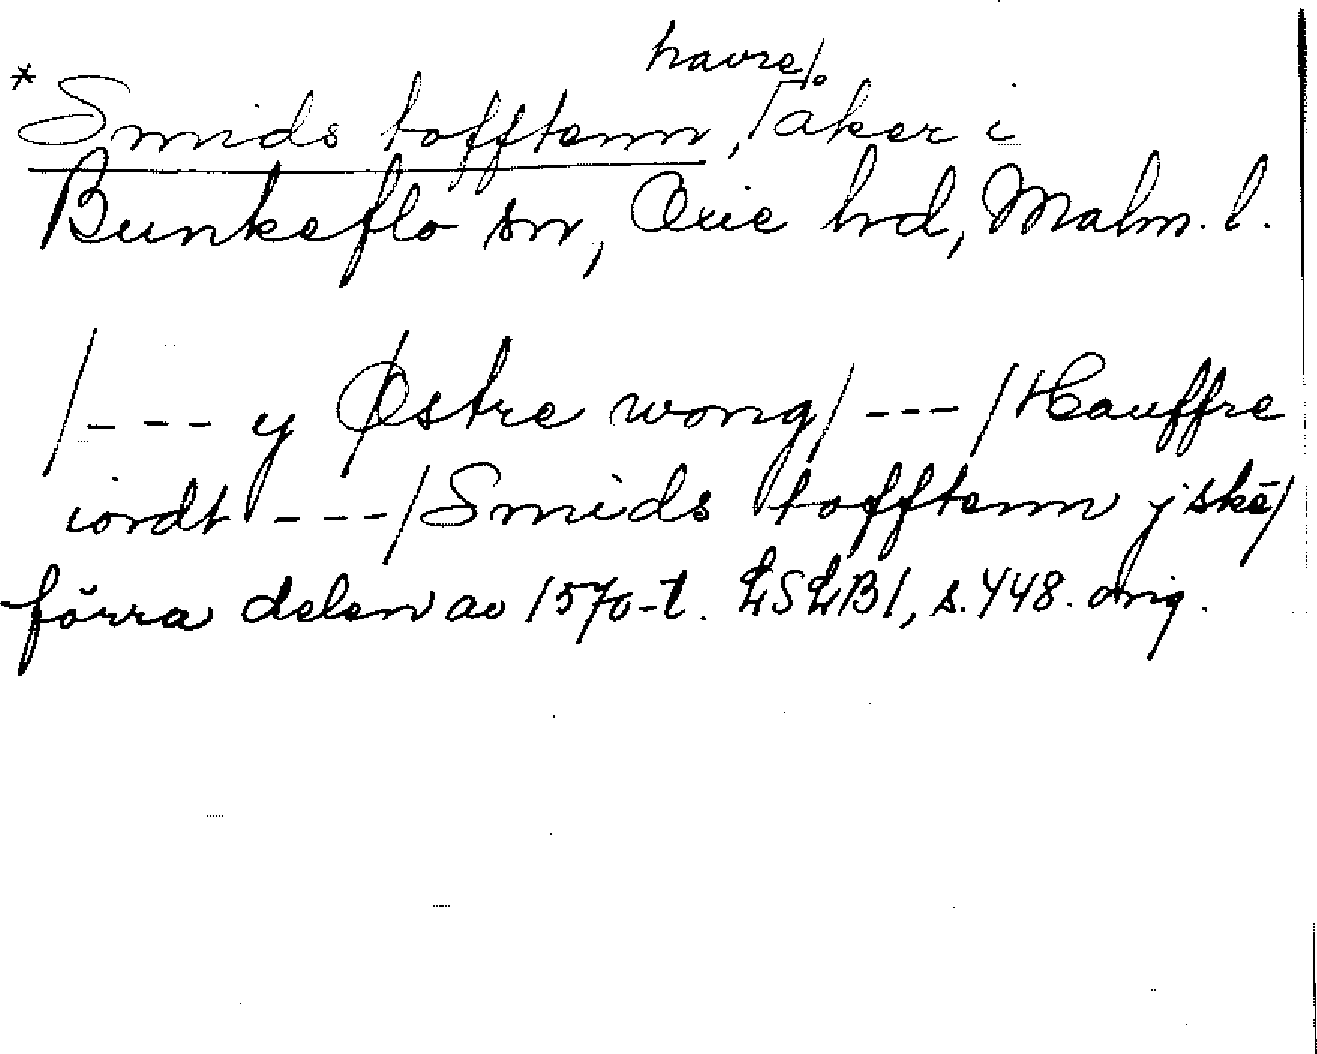 havre/
* Smids tofftenn, /åker i
Bunkeflo sn, Oxie hd, Malm. l.
/--- y Østre wong/ --- /Hauffre
iordt ---/Smids tofftenn j skē/
förra delen av 1570-t. LSLB1, s. 448. orig.